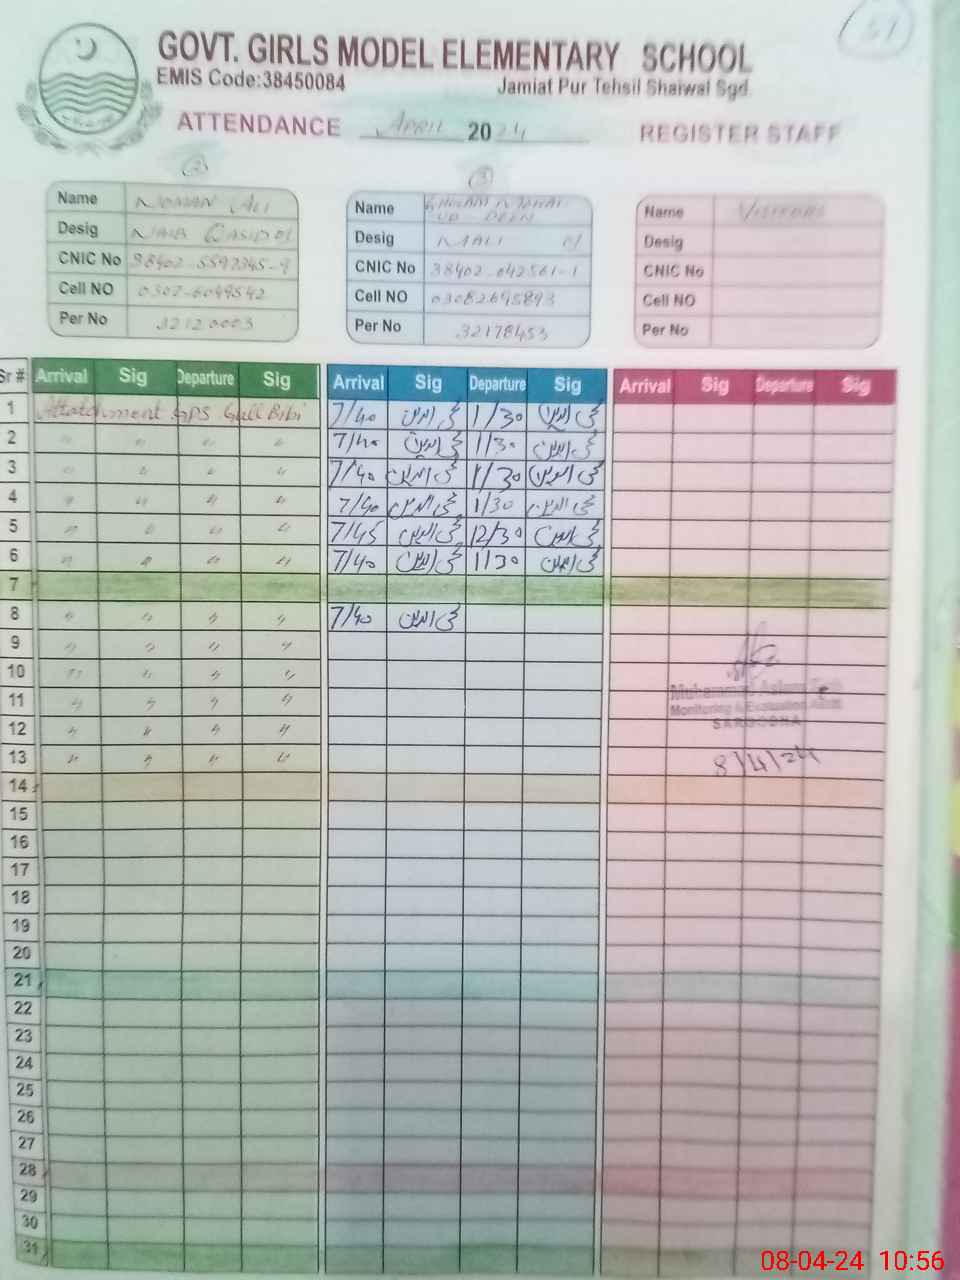 51
GOVT. GIRLS MODEL ELEMENTARY SCHOOL
EMIS Code:38450084 Jamiat Pur Tehsil Shaiwal Sgd.
ATTENDANCE APRIL 2024 REGISTER STAFF
② ③
Name NOMAN ALI
Desig NAIB QASID
CNIC No 38402-5592345-9
Cell NO 0302-6049542
Per No 32120003
Name GHULAM MOHAI UD DEEN
Desig MALI
CNIC No 38402-042561-1
Cell NO 03082695893
Per No 32178453
Name Visitors
Desig
CNIC No
Cell NO
Per No
Sr # Arrival Sig Departure Sig Arrival Sig Departure Sig Arrival Sig Departure Sig
1 Attatchment GPS Gull Bibi 7/40 محی الدین 1/30 محی الدین
2 " " " " 7/40 محی الدین 1/30 محی الدین
3 " " " " 7/40 محی الدین 1/30 محی الدین
4 " " " " 7/40 محی الدین 1/30 محی الدین
5 " " " " 7/45 محی الدین 12/30 محی الدین
6 " " " " 7/40 محی الدین 1/30 محی الدین
7
8 " " " " 7/40 محی الدین
9 " " " "
10 " " " "
11 " " " "
12 " " " "
13 " " " "
Muhammad Aslam
Monitoring & Evaluation
SARGODHA
8/4/24
14
15
16
17
18
19
20
21
22
23
24
25
26
27
28
29
30
31
08-04-24 10:56